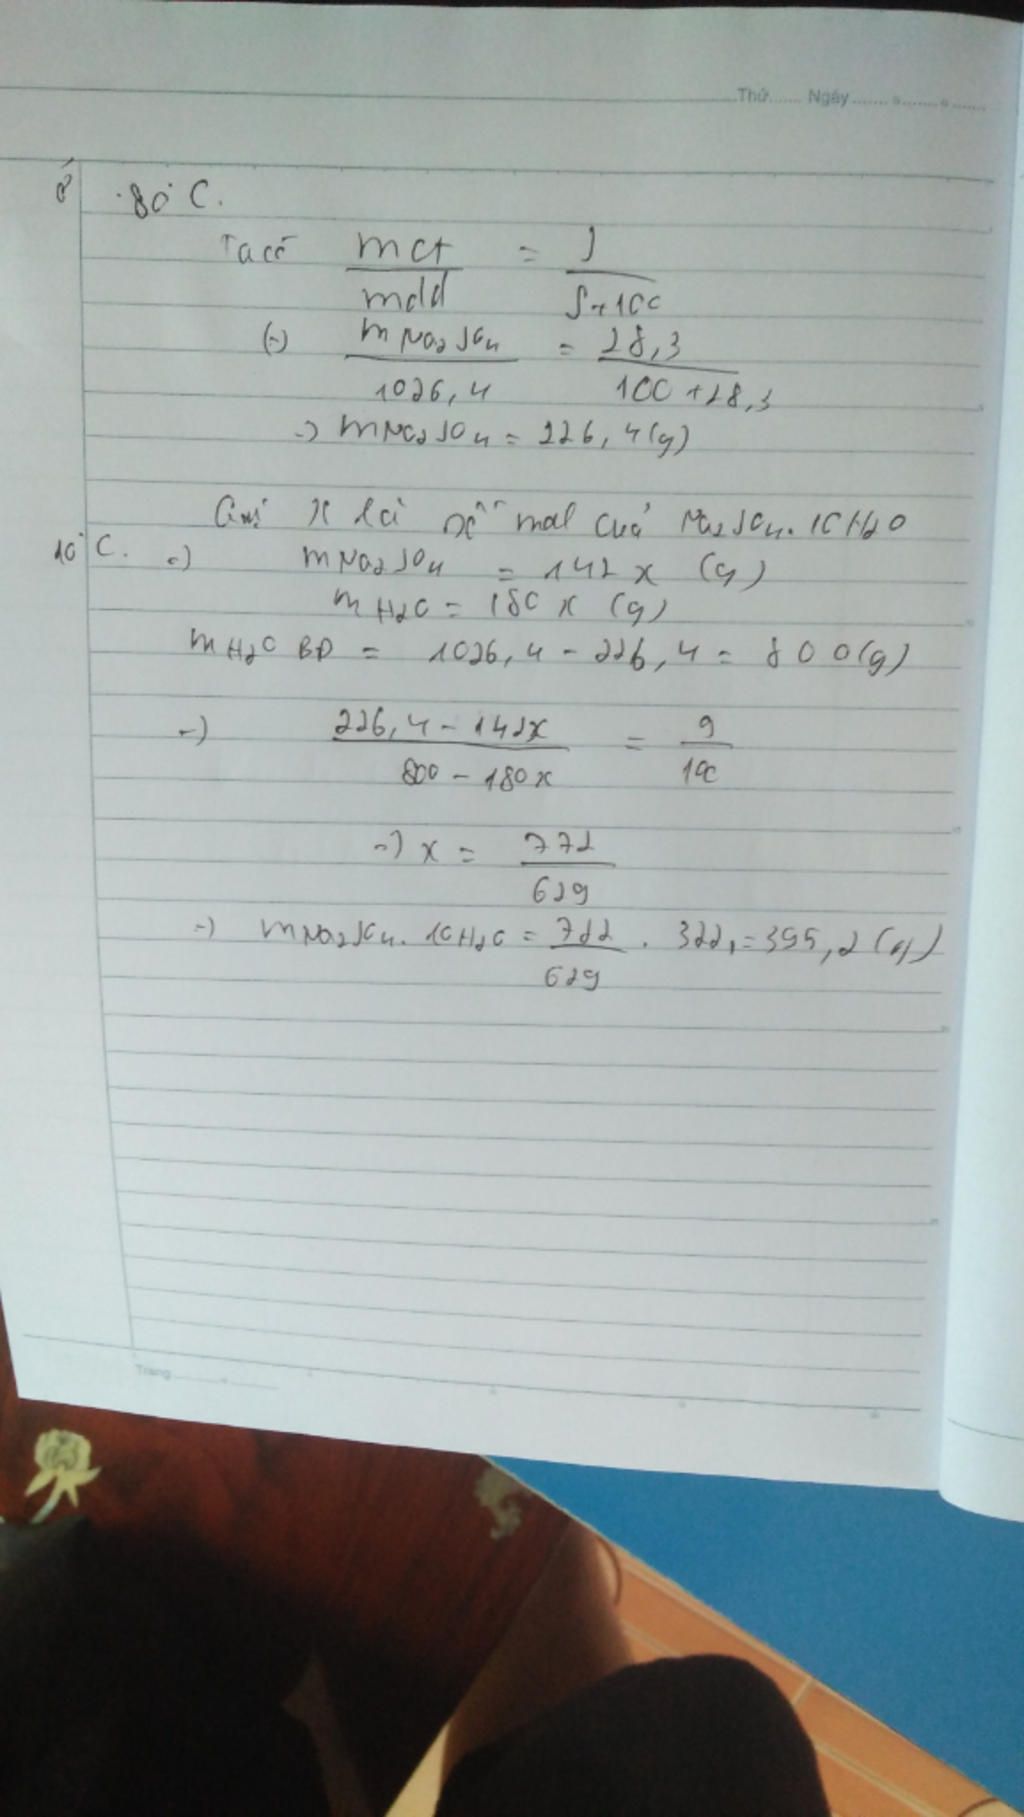 Thứ....... Ngày.......
ở 80°C.
Ta có mct / mdd = S / S+100
(-) m Na2SO4 / 1026,4 = 28,3 / 100+28,3
=) mNa2SO4 = 226,4(g)
Gọi x là số mol của Na2SO4.10H2O
10°C. =) mNa2SO4 = 142x (g)
mH2O = 180x (g)
mH2O BĐ = 1026,4 - 226,4 = 800(g)
=) 226,4 - 142x / 800 - 180x = 9 / 100
=) x = 772 / 629
=) mNa2SO4.10H2O = 772 / 629 . 322 = 395,2(g)
Trang